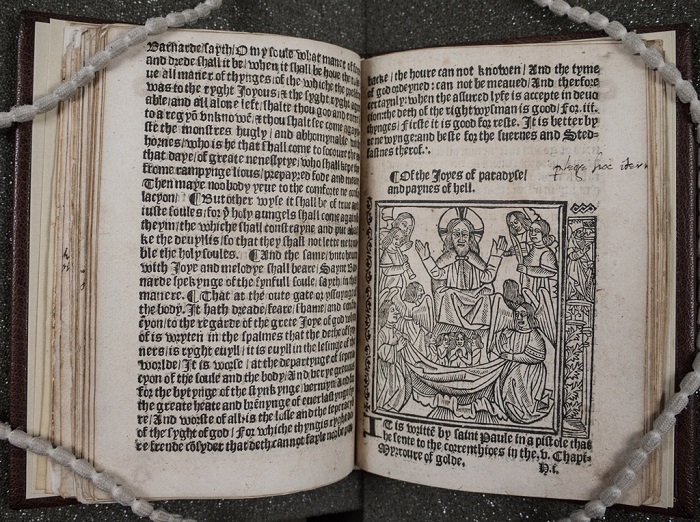 Barnarde/sayth/O my soule what maner of
and drede shall it be/when it shall be houe the to
ue all maner of thynges/of the whiche the
was to the ryght Joyous/& the syght ryght
able/and all alone left/shalte thou god and
to a regyō vnknowē/& thou shalt see come agay
ste the monstres hugly/and abhomynable
hornes/who is he that shall come to socoure the
that daye/of greate necessytye/who shall kepe the
frome rampynge lions/prepayred fode and meate
Then maye noo body yeue to the comforte ne con
lacyon/ ¶ But other wyse it shall be of true an
iuste soules/for yͤ holy aungels shall come agaynst
theym/the whiche shall constrayne and put aba
ke the deuylles/so that they shall not lette ne trou
ble the holy soules. ¶ And the same/vnto heuen
with Joye and melodye shall beare/Saynt Bar
narde spekynge of the synfull soule/sayth/in thys
maniere. ¶ That at the oute gate or yssuynge of
the body. It hath dreade/feare/shame/and confu
syon/to the regarde of the grete Joye of god wher
of is wryten in the spalmes that the dethe of syn
ners/is ryght euyll/it is euyll in the lesinge of the
worlde/It is worse/at the departynge of sepera
cyon of the soule and the body/And verye greuous
for the bytynge of the stynkynge/vermyn/and for
the greate heate and brēnynge of euerlastynge fy
re/And worste of all/is the losse and the seperacyon
of the syght of god/For whiche thyngis ryght de
re frende cōsyder that deth cannot
backe/the houre can not knowen/And the tyme
of god ordeyned: can not be meaued/And therfore
certaynly: when the assured lyfe is accepte in deuo
tion: the deth of the right wysman is good/For. iii.
thynges/Firste it is good for reste. It is better by
renewynge: and beste for the suernes and Sted-
fastnes therof.·.
hoc
¶ Of the Joyes of paradyse/
and paynes of hell.
IT is wittē by saint Paule in a pistole that
be sente to the corenthioes in the. v. Chapt-
Myrroure of golde.
H.i.